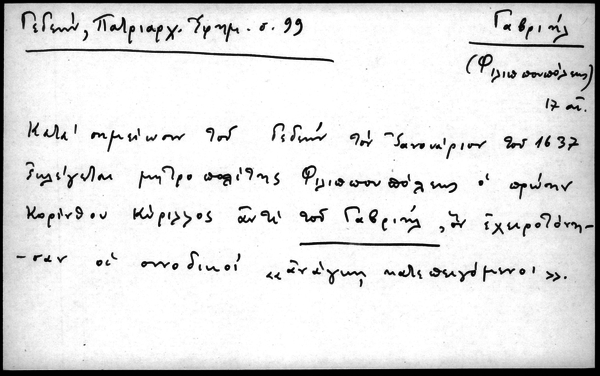 Γεδεών, Πατριαρχ. Ἐφημ. σ. 99
Γαβριήλ
(Φιλιππουπόλεως)
17 αἰ.
Κατὰ σημείωσιν τοῦ Γεδεὼν τὸν Ἰανουάριον τοῦ 1637
ἐκλέγεται μητροπολίτης Φιλιππουπόλεως ὁ πρώην
Κορίνθου Κύριλλος ἀντὶ τοῦ Γαβριήλ, ὃν ἐχειροτόνη-
-σαν οἱ συνοδικοί «ἀνάγκῃ κατεπειγόμενοι».